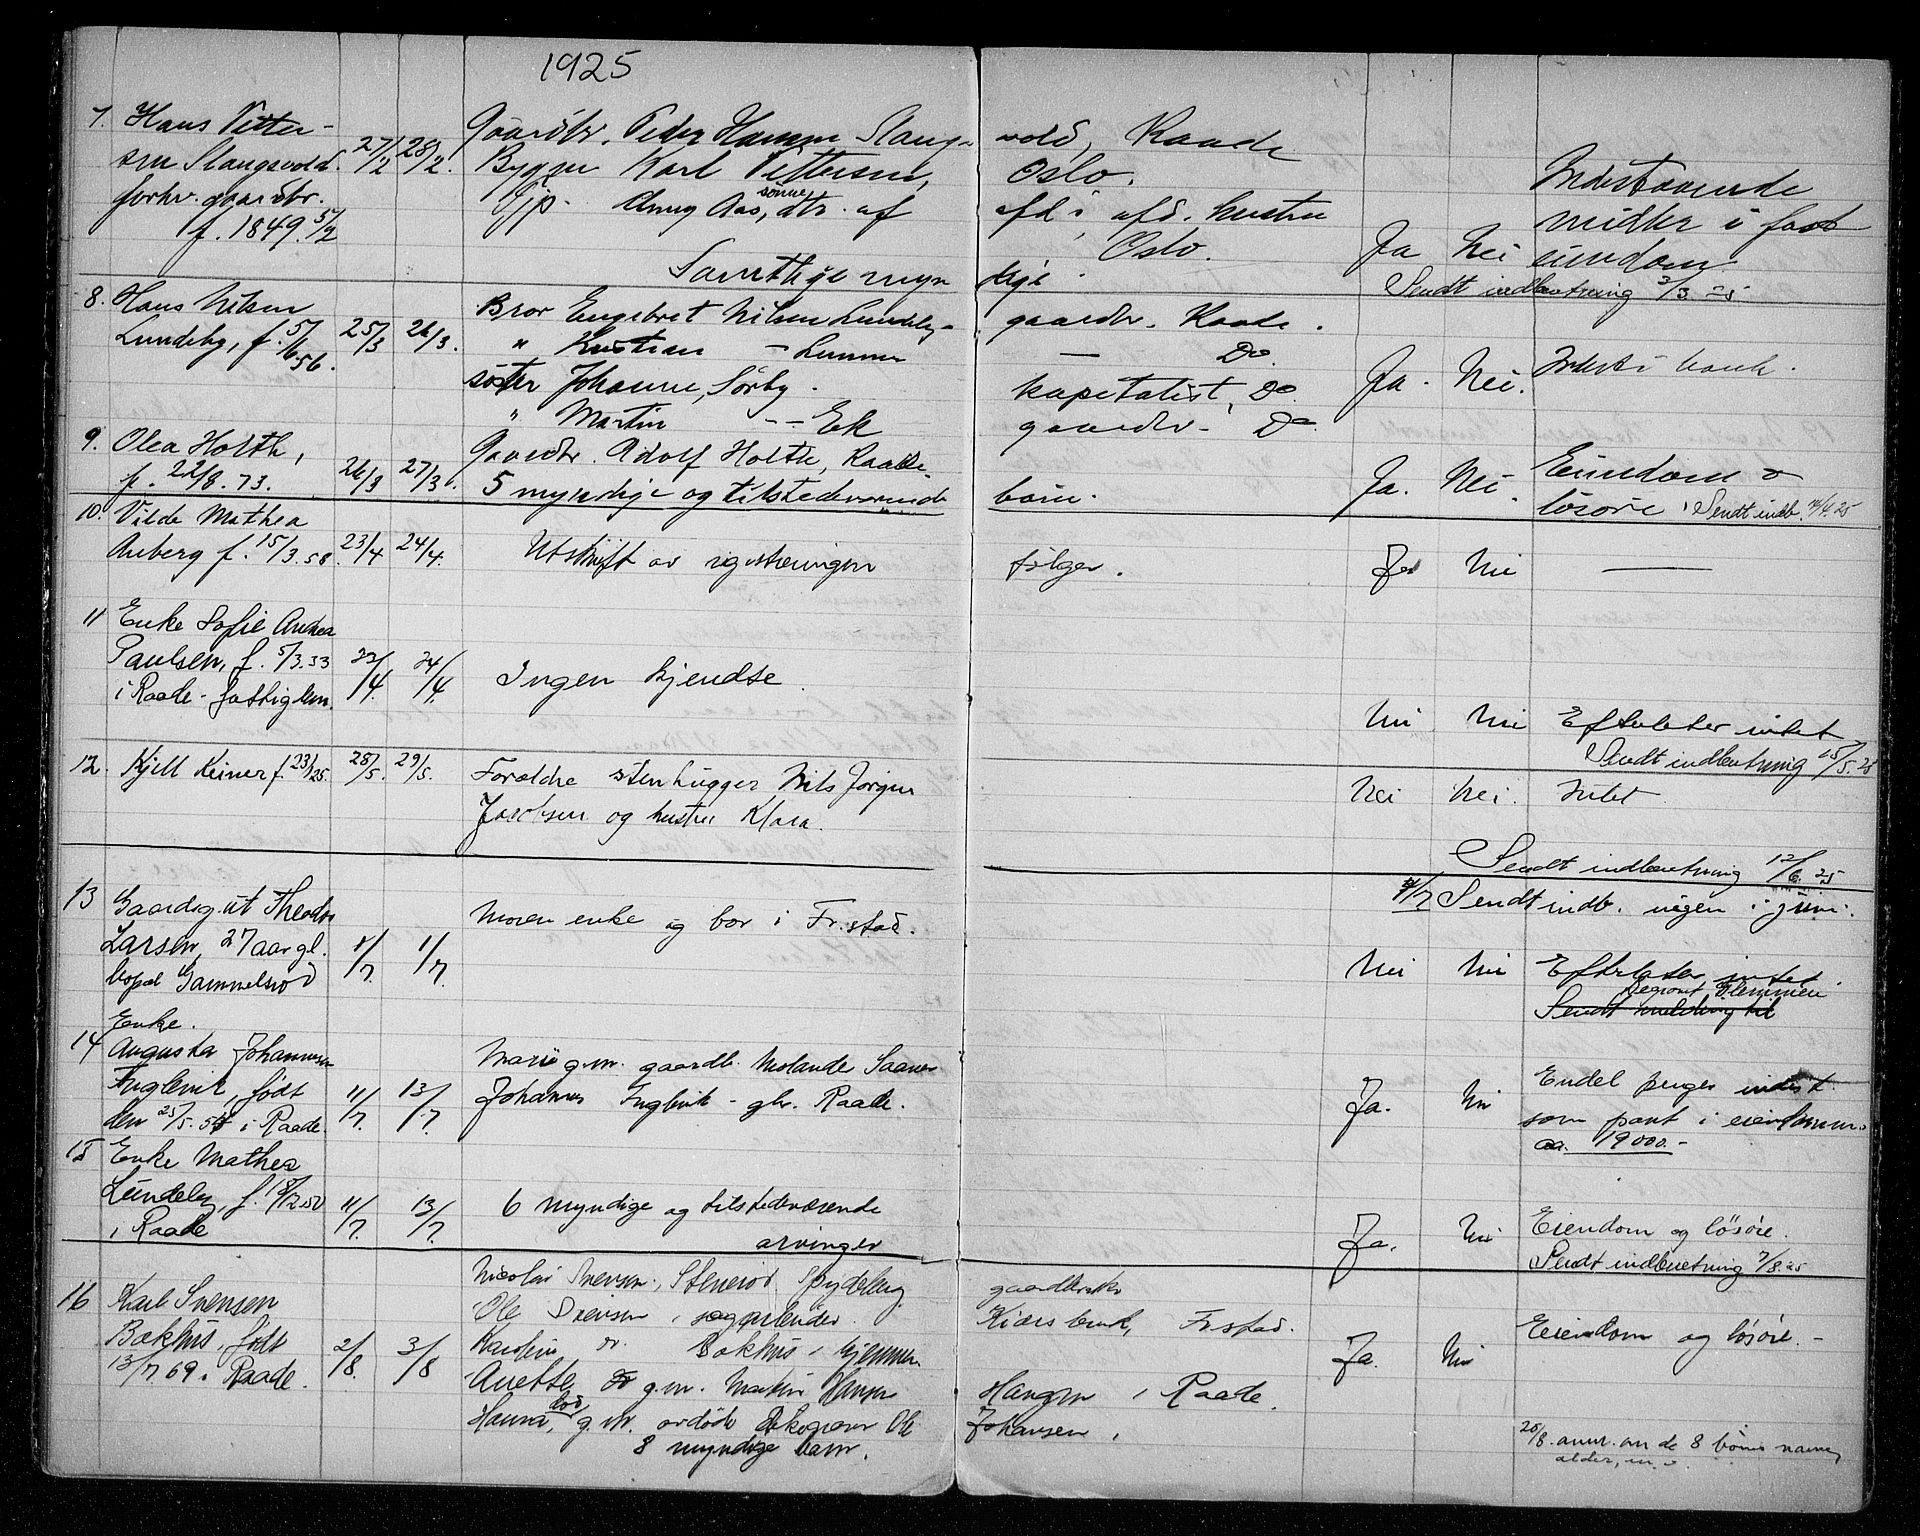 1925
7. Hans Petter-
sen Slangsvold. 27/2 28/2. Gaardbr. Peder Hansen Slangs- vold, Raade
forhv. gaardbr. Byggm Karl Pettersen, Oslo. Indestaaende
f. 1849. 5/2 Gjp. Anny Aas, sönne dtr. af afd. i afd. hustru midler i fast
Oslo. Ja Nei eiendom
Samtlige myn dige. Sendt indberetning 2/3-25
8. Hans Nilsen Bror Engebret Nilsen Lundeby- gaardbr. Raade.
Lundeby, f. 5/6.56. 25/3 26/3. " Kristian - Lunden — Do.
söster Johanne, Sörby. kapitalist, Do. Ja. Nei. Indest i bank.
" Martin -- Ek gaardbr- Do
9. Olea Holth, Gaardbr. Adolf Holth, Raade.
f. 22/8.73. 26/3 27/3. 5 myndige og tilstedeværende barn. Ja. Nei. Eiendom &
lösöre. Sendt indb. 14/4.25
10. Vilde Mathea
Auberg f. 15/3.58. 23/4 24/4. Utskrift av registreringen fölger. Ja Nei —
11 Enke Sofie Andrea
Paulsen, f. 5/3.33 22/4. 24/4. Ingen kjendte.
i Raade-fattighem. Nei Nei Efterlater intet
Sendt indberetning 15/5.25
12. Kjell Reiner f. 23/25. 28/5. 29/5. Forældre stenhugger Nils Jörgen
Jacobsen og hustru Klara. Nei Nei. Intet
Sendt indberetning 12/6.25
4/7 Sendt indb. ingen i juni.
13 Gaardsgut Theodor
Larsen, 27 aar gl. 1/7. 1/7. Moren enke og bor i Fr.stad.
bopæl Gammelsrod Nei Nei Efterlater intet.
Begravet Glemmen
Sendt melding til
14 Enke.
Augusta Johannesen Marie g.m. gaardb.
Fuglevik, födt 11/7. 13/7. Johannes Fuglevik - gbr. Raade. Ja. Nei Endel penger indest.
den 25/5. i Raade. som pant i eiendommen
ca. 19000.-
15 Enke Mathea
Lundeby, f. 18/12.50 11/7. 13/7. 6 myndige og tilstedeværende
i Raade arvinger Ja. Nei Eiendom og lösöre.
Sendt indberetning 7/8.25
16 Karl Svensen Nicolai Svensen, Stenerod, Spydeberg. gaardbruker
Bakhus, födt 2/8. 3/8 Ole Svensen, sagarbeider. Kiærs bruk, Fr.stad.
13/7 69 i Raade. Karoline Do. Bakhus i hjemmen Ja. Nei Eiendom og lösöre.-
Anette Do g.m. Martin Hansen Haugen i Raade.
Hanna, död g.m. Ole Johansen,
8 myndige barn.
20/8. anm. om de 8 börns navne,
alder, m.v.